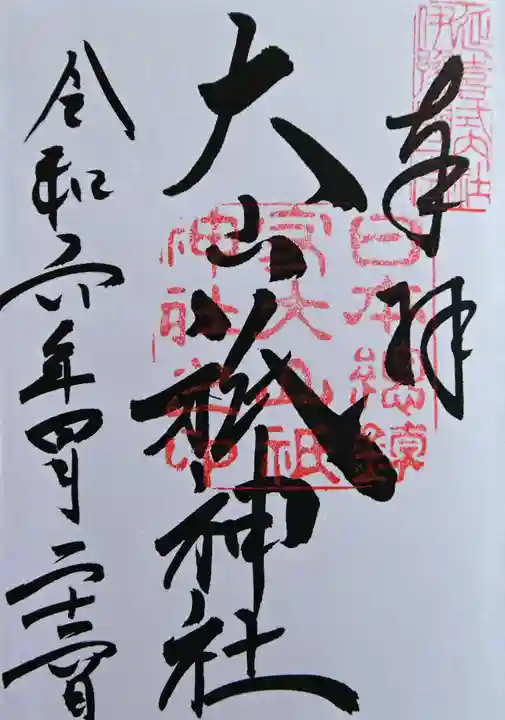 延喜式内社
奉拝
日本總鎮
守大山祇
神社之印
大山祇神社
令和六年四月二十三日